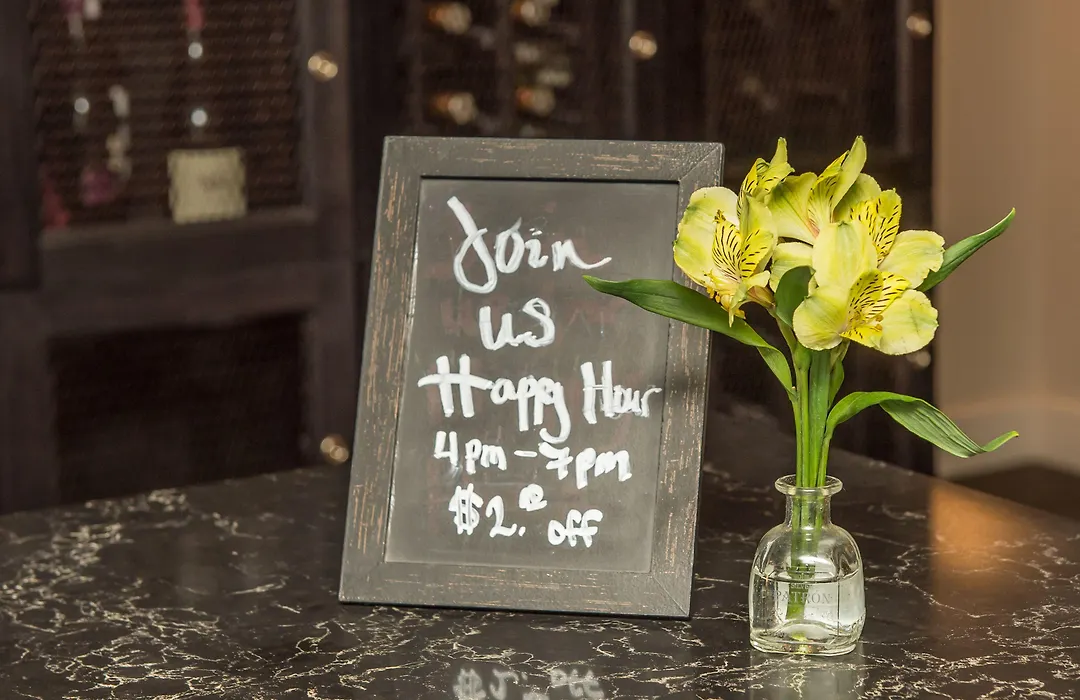 Join
us
Happy Hour
4pm - 7pm
$2.00 off
PATRON